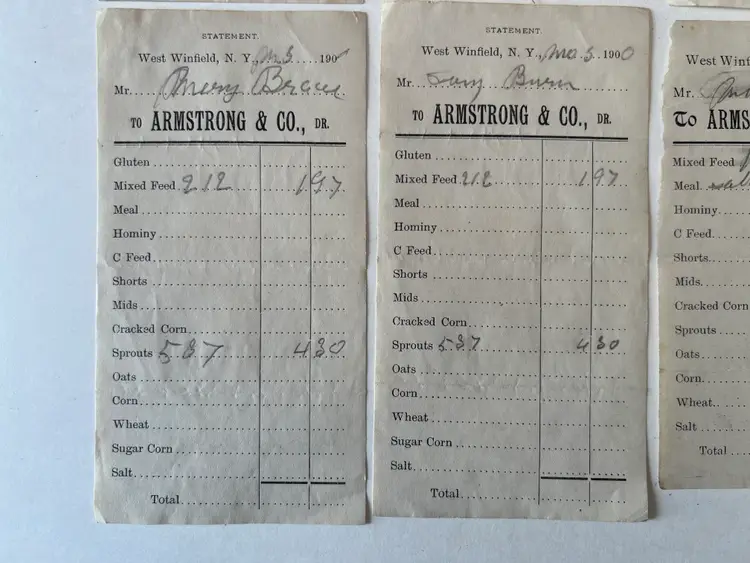 STATEMENT.
West Winfield, N. Y., 190
Mr.
TO ARMSTRONG & CO., DR.
Gluten
Mixed Feed 212 1 97
Meal
Hominy
C Feed
Shorts
Mids
Cracked Corn
Sprouts 537 4 30
Oats
Corn
Wheat
Sugar Corn
Salt
Total
STATEMENT.
West Winfield, N. Y., 1900
Mr.
TO ARMSTRONG & CO., DR.
Gluten
Mixed Feed 212 1 97
Meal
Hominy
C Feed
Shorts
Mids
Cracked Corn
Sprouts 537 4 30
Oats
Corn
Wheat
Sugar Corn
Salt
Total
West Winf
Mr.
To ARMS
Mixed Feed
Meal
Hominy
C Feed
Shorts
Mids.
Cracked Corn
Sprouts
Oats
Corn
Wheat
Salt
Total